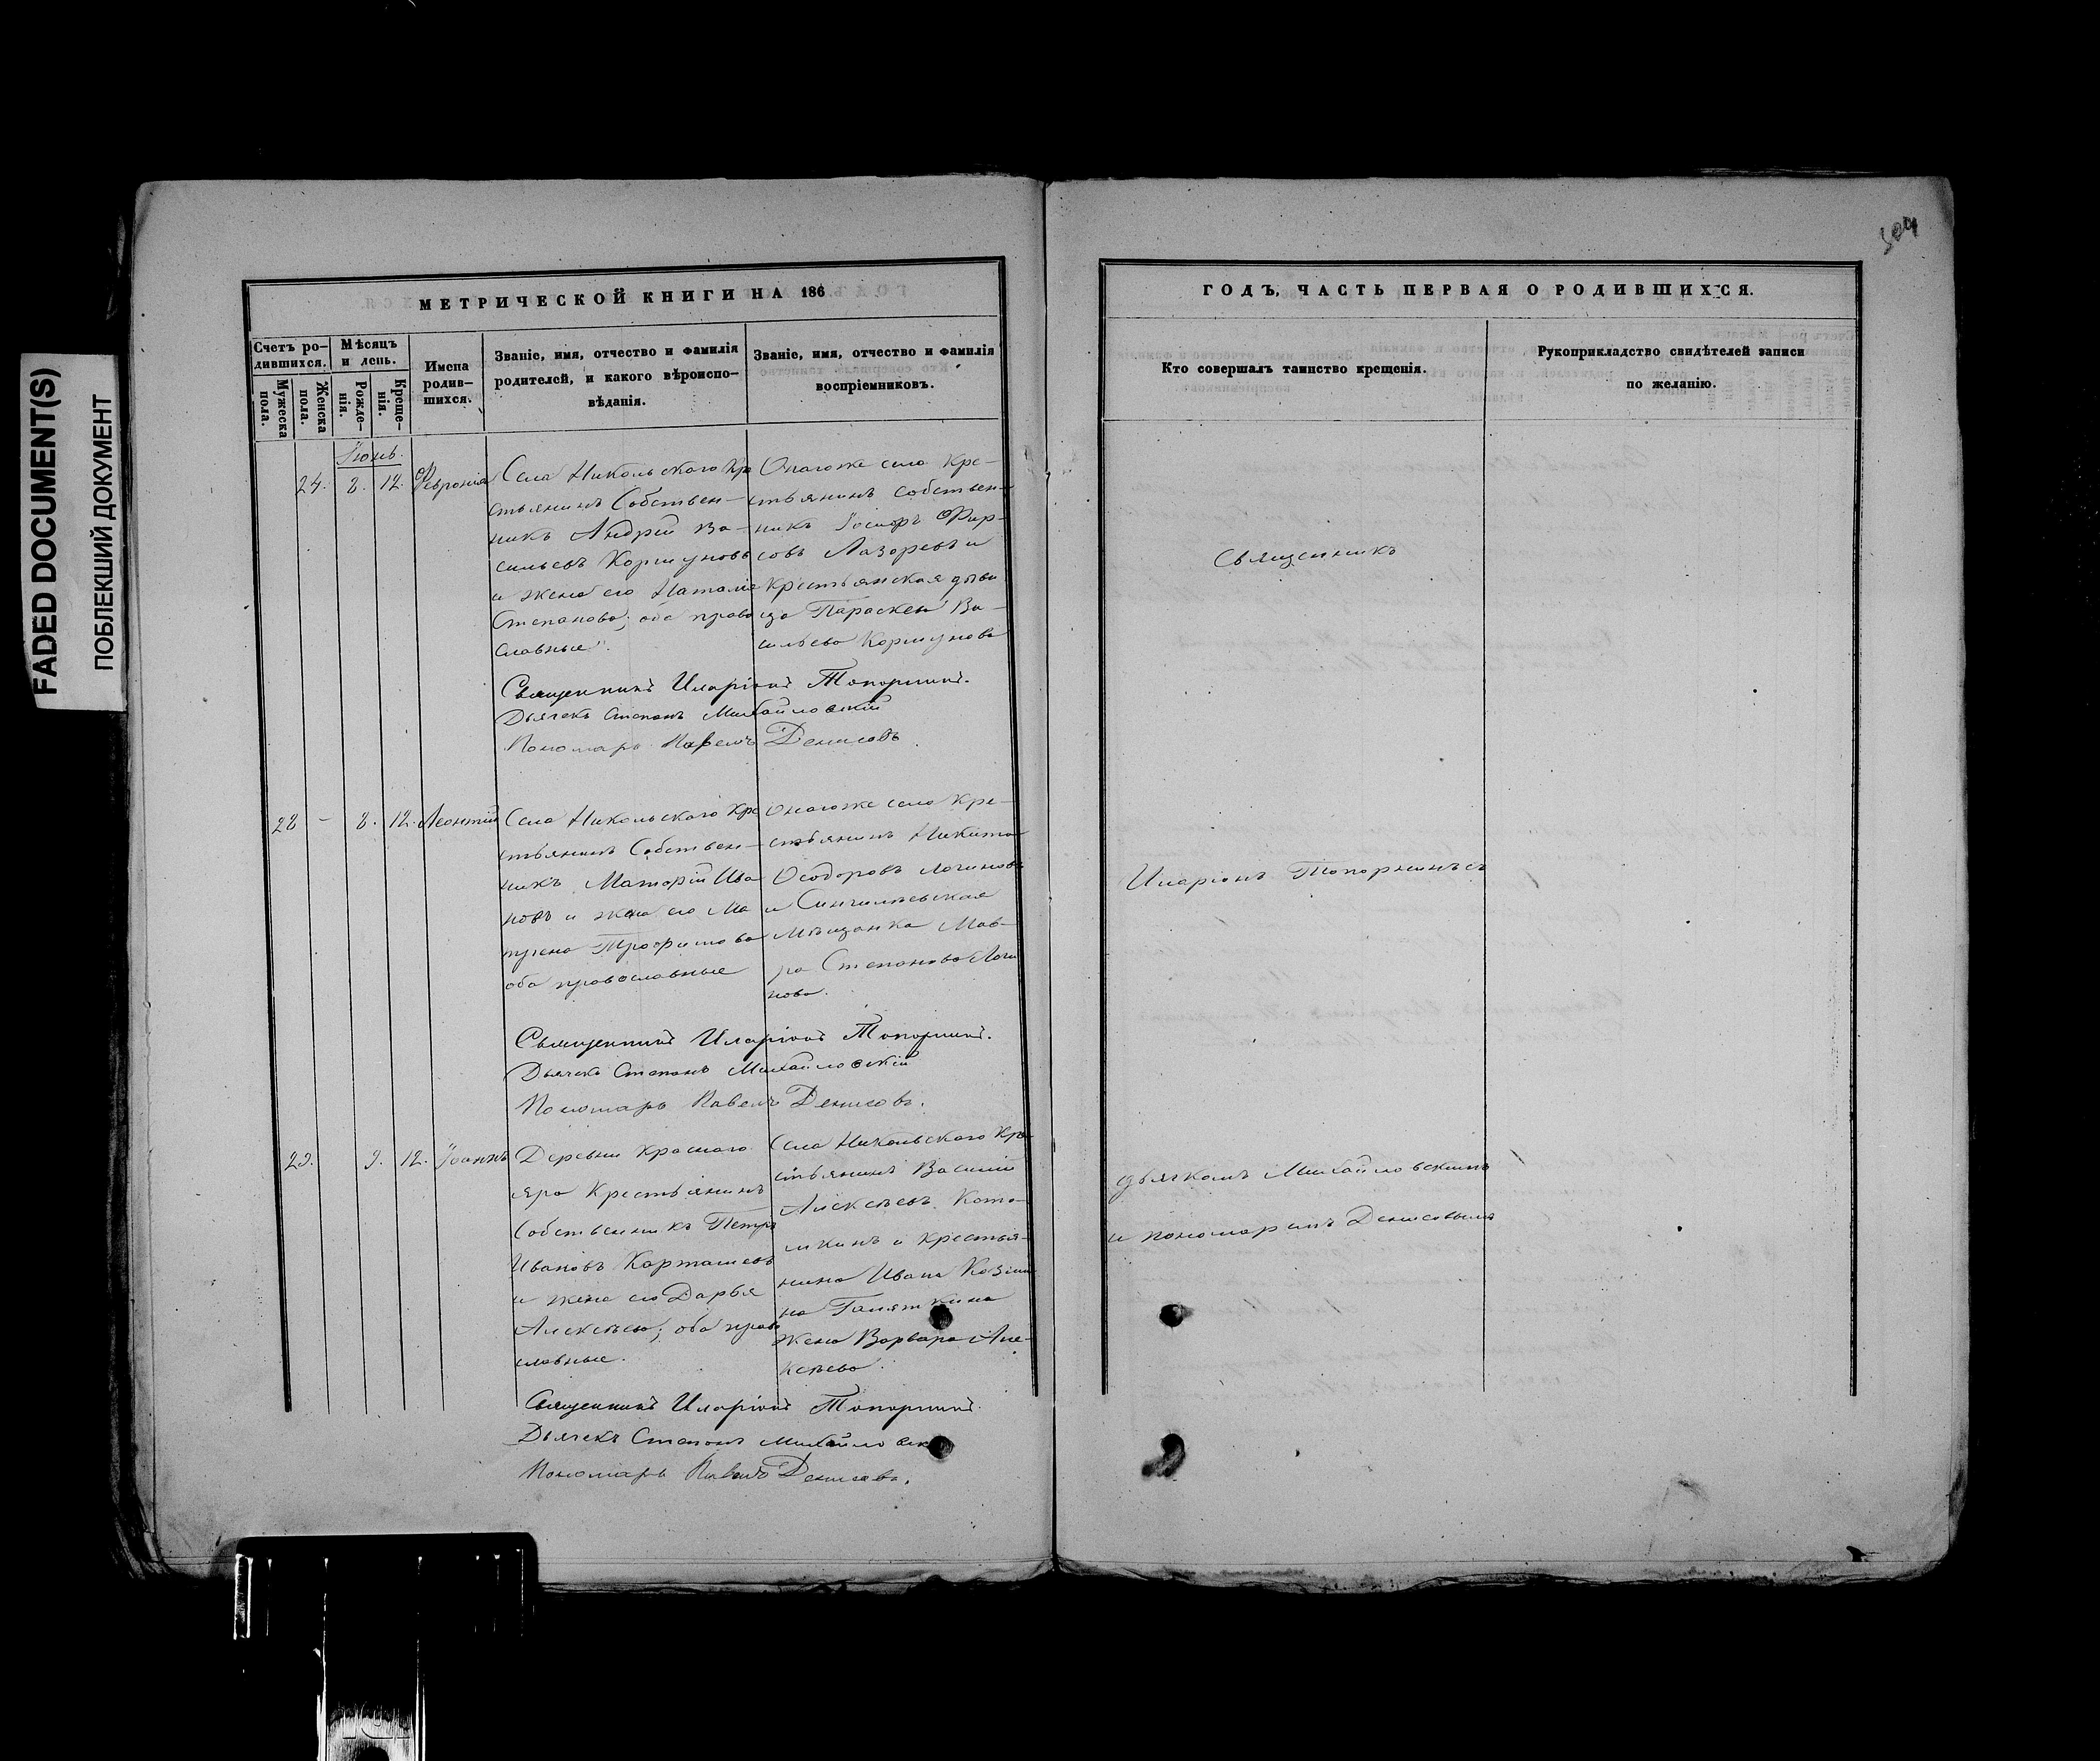 FADED DOCUMENT(S)
ПОБЛЕКШИЙ ДОКУМЕНТ
304
МЕТРИЧЕСКОЙ КНИГИ НА 186
Счетъ ро-
дившихся.
Мужеска
пола.
Женска
пола.
Мѣсяцъ
и день.
Рожде-
нія.
Креще-
нія.
Имена
родив-
шихся.
Званіе, имя, отчество и фамилія
родителей, и какого вѣроиспо-
вѣданія.
Званіе, имя, отчество и фамилія
воспріемниковъ.
Іюнь.
24. 8. 12. Февронія
Села Никольскаго Кре
стьянинъ Собствен-
никъ Андрей Ва-
сильевъ Коршуновъ
и жена его Наталія
Степанова; оба право
славные.
Онагоже села Кре-
стьянинъ собствен-
никъ Іосифъ Фир-
совъ Лазаревъ и
крестьянская дѣви
ца Параскева Ва-
сильева Коршунова
Священникъ Иларіонъ Топорнинъ.
Дьячекъ Степанъ Михайловскій
Пономарь Павелъ Денисовъ
28 - 8. 12. Леонтій
Села Никольскаго Кре
стьянинъ Собствен-
никъ Маторій Ива
новъ и жена его Ма
трена Трофимова
оба православные
Онагоже села Кре-
стьянинъ Никита
Ѳеодоровъ Логиновъ
и Сингилѣевская
Мѣщанка Мав-
ра Степанова Логи
нова.
Священникъ Иларіонъ Топорнинъ.
Дьячекъ Степанъ Михайловскій
Пономарь Павелъ Денисовъ.
29. 9. 12. Іоаннъ
Деревни Краснаго
яра Крестьянинъ
Собственникъ Петръ
Ивановъ Карташевъ
и жена его Дарья
Алексѣева; оба право
славные.
Села Никольскаго Кре-
стьянинъ Василій
Алексѣевъ Като-
шкинъ и крестья-
нина Ивана Козми
на Галяткина
жена Варвара Але-
ксѣева.
Священникъ Иларіонъ Топорнинъ.
Дьячекъ Степанъ Михайловск
Пономарь Павелъ Денисовъ.
ГОДЪ, ЧАСТЬ ПЕРВАЯ О РОДИВШИХСЯ.
Кто совершалъ таинство крещенія.
Рукоприкладство свидѣтелей записи
по желанію.
Священникъ
Иларіонъ Топорнинъ съ
дьячкомъ Михайловскимъ
и пономаремъ Денисовымъ